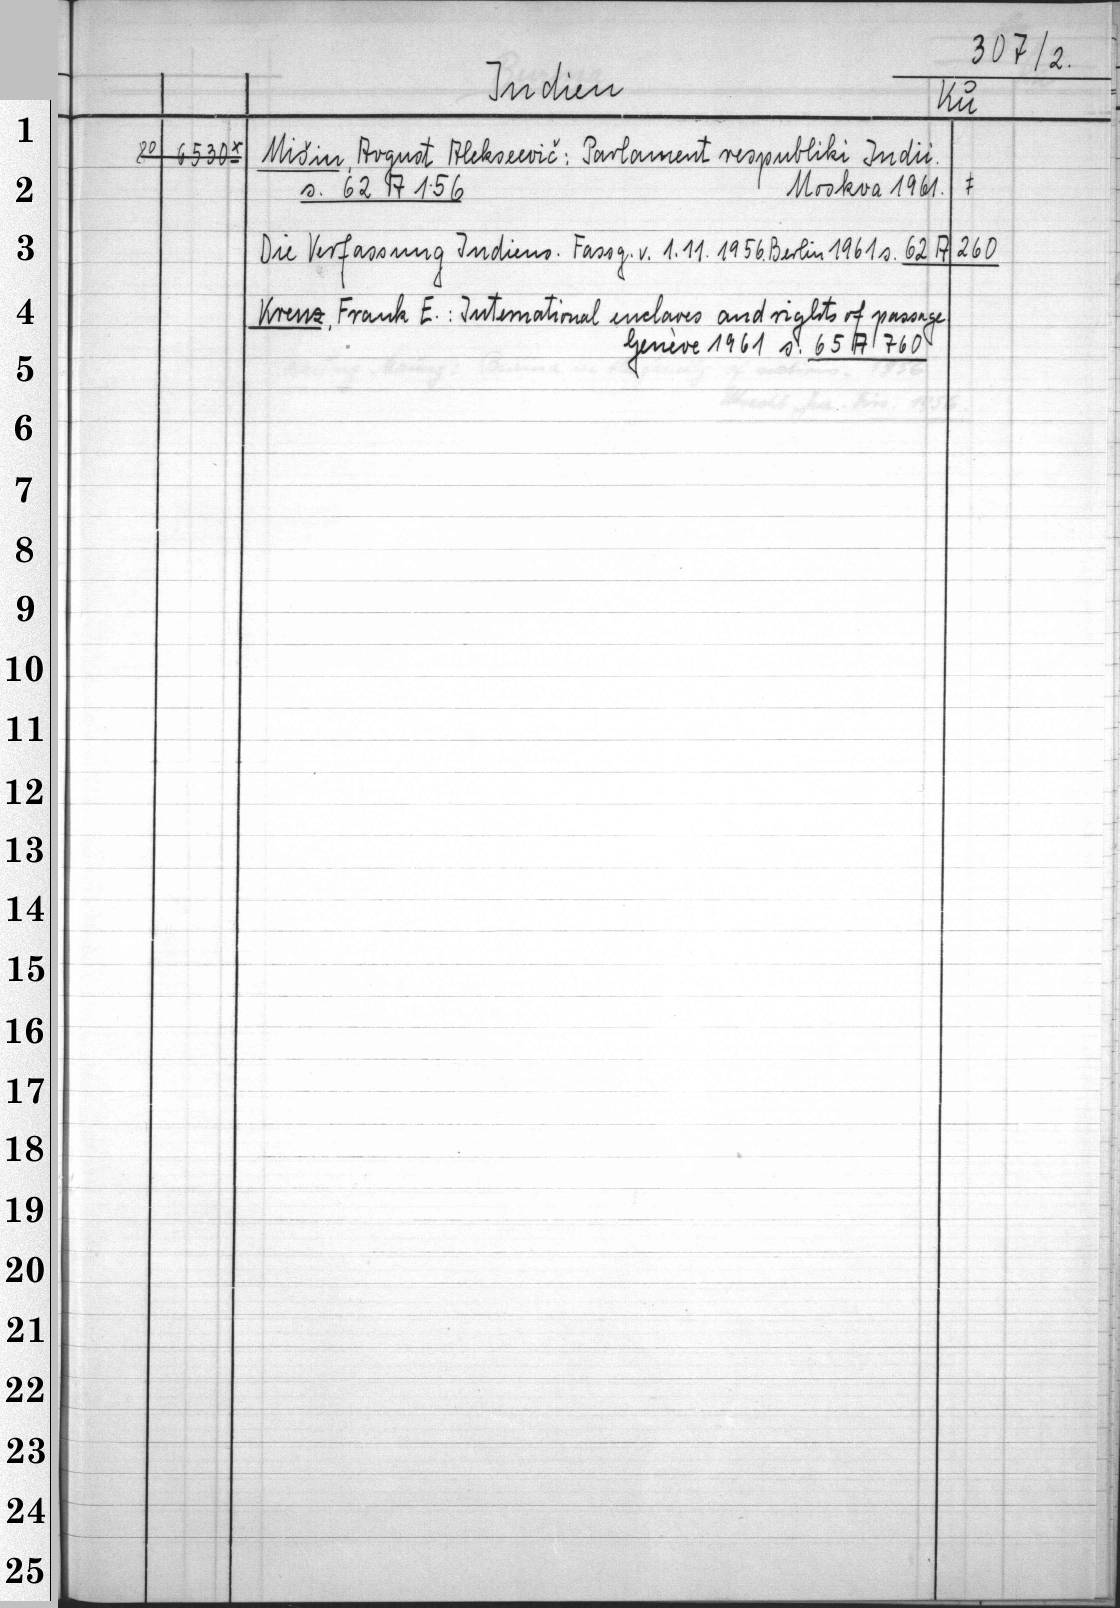 307/2.
Indien
Kü
1
8° 6530x Mišin, Avgust Alekseevič: Parlament respubliki Indii.
2 s. 62 A 156 Moskva 1961. ‡
3 Die Verfassung Indiens. Fassg. v. 1.11.1956. Berlin 1961 s. 62 A 260
4 Krenz, Frank E.: International enclaves and rights of passage
Genève 1961 s. 65 A 760
5
6
7
8
9
10
11
12
13
14
15
16
17
18
19
20
21
22
23
24
25